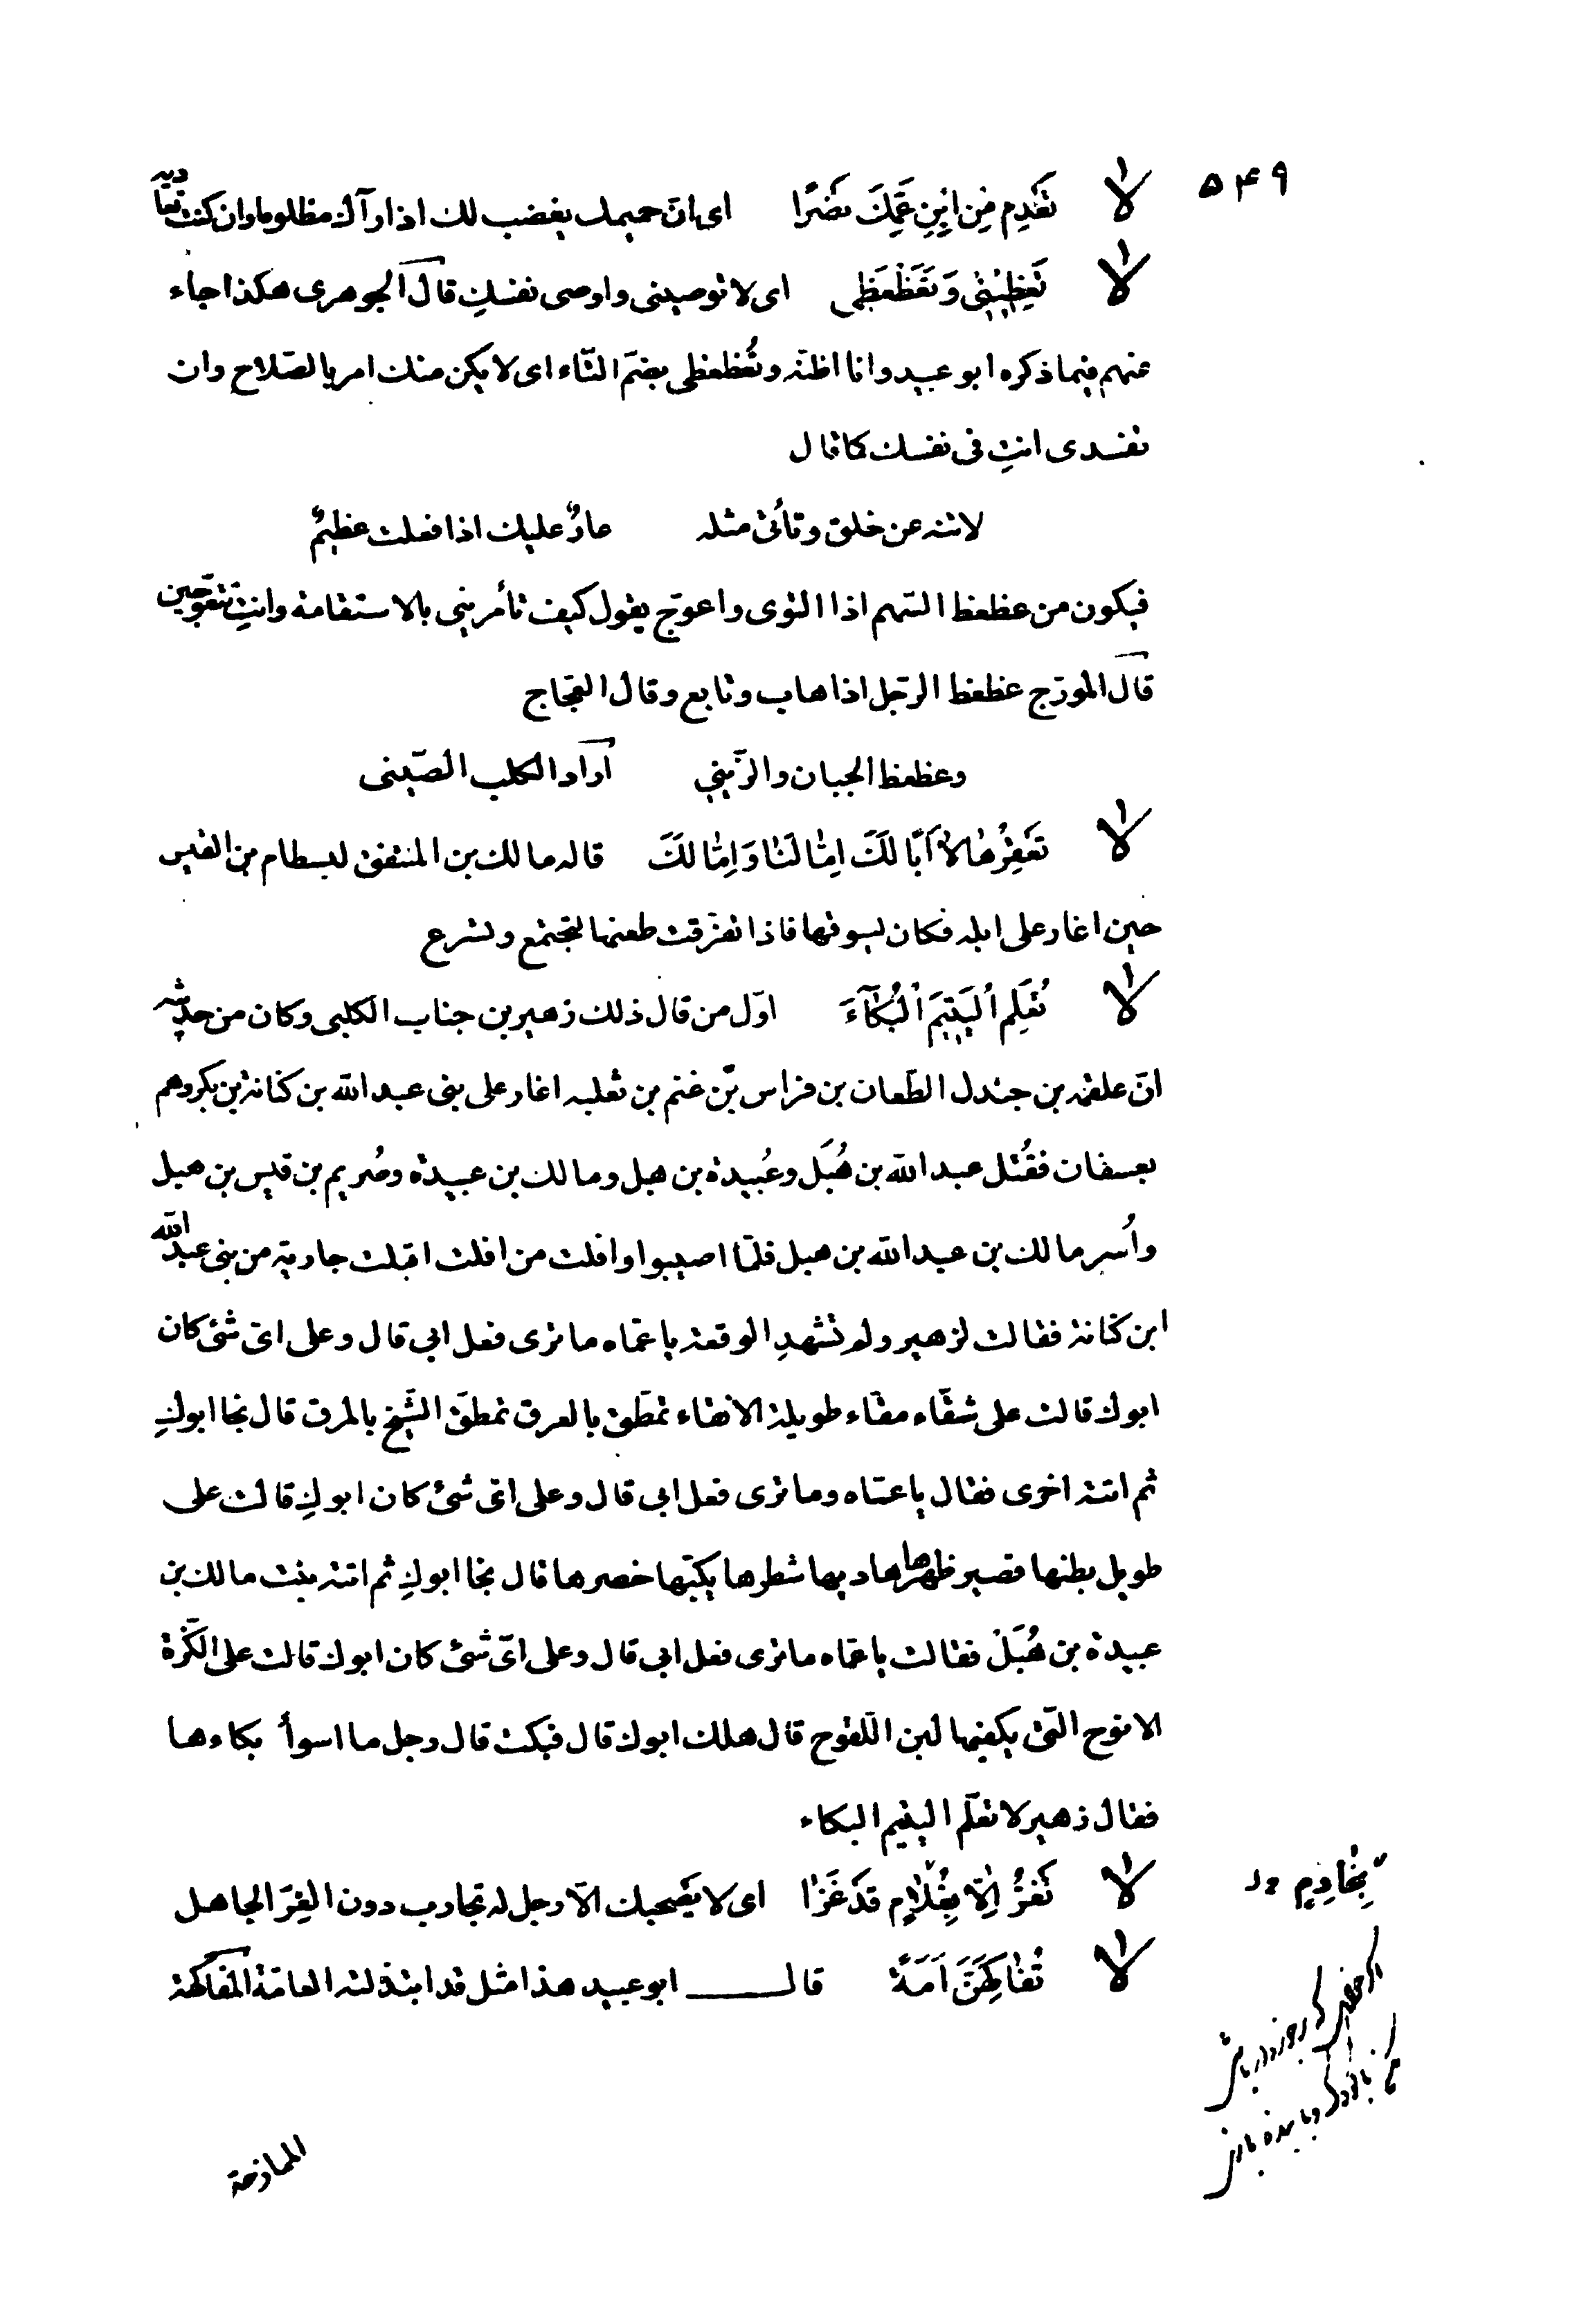 ٥٤٩
لا تَعْدِمُ مِنِ ابْنِ عَمِّكَ نَصْرًا اى ان حميمك يغضب لك اذا رآك مظلوما وان كنت تعاديه
لا تَعِظِيْنِى وَتَعَظْعَظِى اى لا توصينى واوصى نفسكِ قال الجوهرى هكذا جاء
عنهم فيما ذكره ابو عبيد وانا اظنّه وتُعظعظى بضمّ التّاء اى لا يكن منك امر بالصّلاح وان
تفسدى انتِ فى نفسك كما قال
لا تنه عن خلق وتأتى مثله عارٌ عليك اذا فعلت عظيمٌ
فيكون من عظعظ السّهم اذا التوى واعوجّ يقول كيف تأمرينى بالاستقامة وانتِ تتعوّجين
قال المورّج عظعظ الرّجل اذا هاب وتابع وقال العجّاج
وعظعظ الجبان والزّينى اراد الكلب الصّينى
لا تَعْقِرْهَا لاٰ اَبًا لَكَ اِمّٰا لَنٰا وَاِمّٰا لَكَ قاله مالك بن المنتفق لبسطام بن القيس
حين اغار على ابله فكان يسوقها فاذا تفرّقت طعنها لتجتمع وتسرع
لا تُعَلِّمِ الْيَتِيْمَ الْبُكٰآءَ اوّل من قال ذلك زهير بن جناب الكلبى وكان من حديثه
انّ علقمه بن جندل الطّعان بن فراس بن غنم بن ثعلبه اغار على بنى عبد الله بن كنانة بن بكر وهم
بعسفان فقُتل عبد الله بن هُبَل وعُبيدة بن هبل ومالك بن عبيدة وصُريم بن قيس بن هبل
واُسر مالك بن عبد الله بن هبل فلمّا اصيبوا وافلت من افلت اقبلت جارية من بنى عبد الله
ابن كنانة فقالت لزهير ولم تشهدِ الوقعة يا عمّاه ما ترى فعل ابى قال وعلى اىّ شئ كان
ابوك قالت على شقّاء مقّاء طويلة الانقاء تمطّق بالعرق تمطّق الشّيخ بالمرق قال نجا ابوكِ
ثم اتته اخرى فقال يا عمّاه وما ترى فعل ابى قال وعلى اىّ شئ كان ابوكِ قالت على
طويل بطنها قصير ظهرها هاديها شطرها يكبّها خصرها قال نجا ابوكِ ثم اتته بنت مالك بن
عبيدة بن هُبَلْ فقالت يا عمّاه ما ترى فعل ابى قال وعلى اىّ شئ كان ابوك قالت على الكَزّة
الانوح الّتى يكفيها لبن اللّقوح قال هلك ابوك قال فبكت قال رجل ما اسوأ بكاءها
فقال زهير لا تعلّم اليتيم البكاء
لا تَغْزُ اِلّاٰ بِغُلاٰمٍ قَدْ غَزٰا اى لا يصحبك الّا رجل له تجارب دون الغِرّ الجاهل
بخادم
لا تُفٰاكِهَنَّ اَمَةً قال ابو عبيد هذا مثل قد ابتذلته العامّة المفاكهة
الممازحة